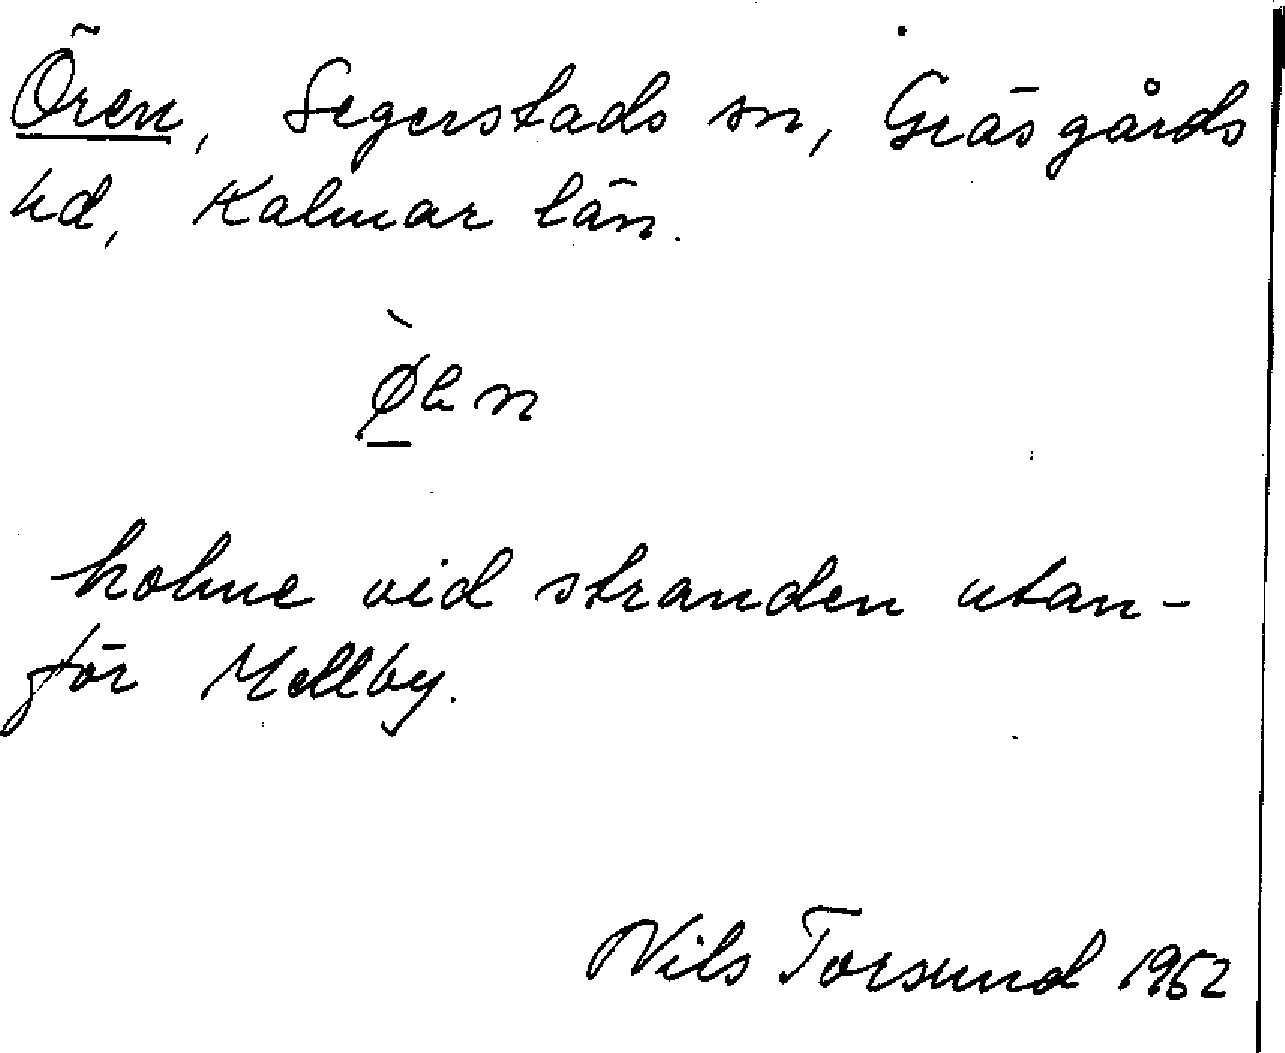 Ören, Segerstads sn, Gräsgårds
hd, Kalmar län.
holme vid stranden utan-
för Mellby.
Nils Torsund 1962